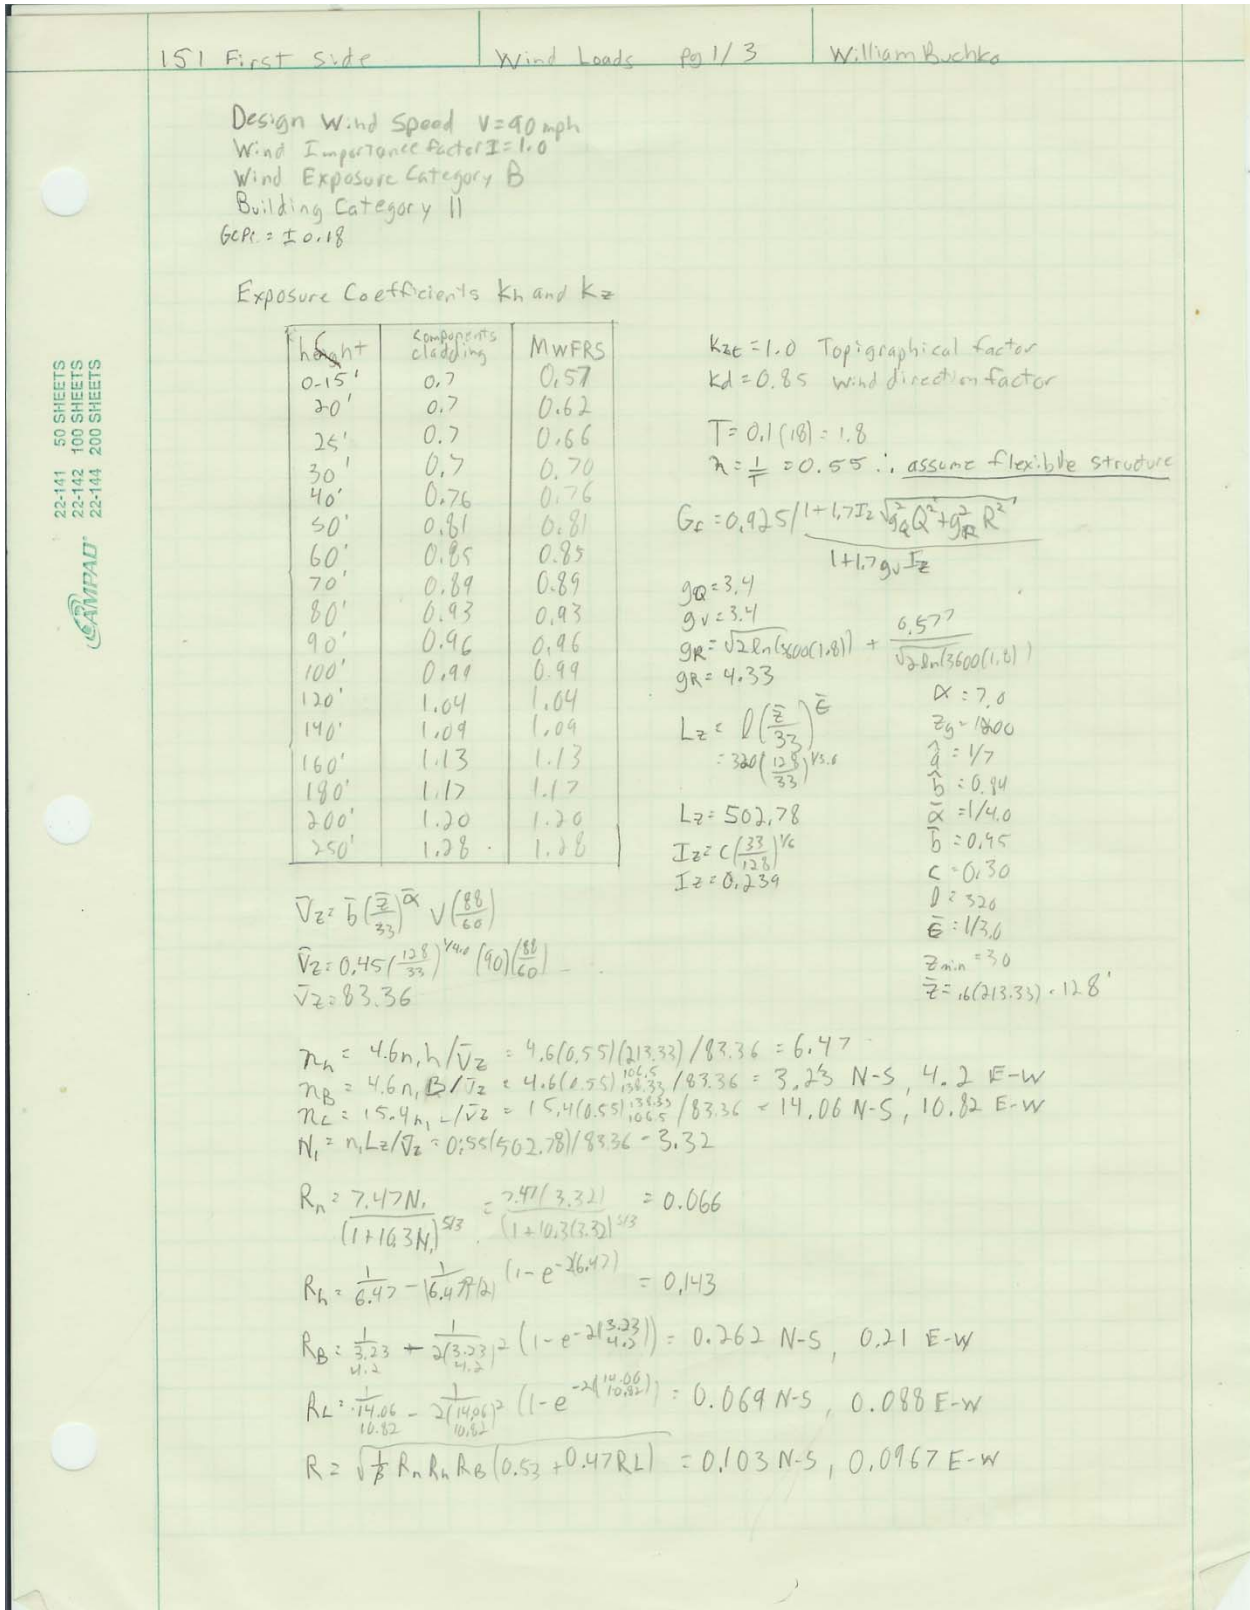 151 First Side Wind Loads pg 1/3 William Buchko
Design Wind Speed V=90 mph
Wind Importance factor I=1.0
Wind Exposure Category B
Building Category II
GCPi = ±0.18
Exposure Coefficients Kh and Kz
height components cladding MWFRS
0-15' 0.7 0.57
20' 0.7 0.62
25' 0.7 0.66
30' 0.7 0.70
40' 0.76 0.76
50' 0.81 0.81
60' 0.85 0.85
70' 0.89 0.89
80' 0.93 0.93
90' 0.96 0.96
100' 0.99 0.99
120' 1.04 1.04
140' 1.09 1.09
160' 1.13 1.13
180' 1.17 1.17
200' 1.20 1.20
250' 1.28 1.28
Kzt = 1.0 Topigraphical factor
Kd = 0.85 wind direction factor
T = 0.1(18) = 1.8
n = 1/T = 0.55 ∴ assume flexible structure
Gf = 0.925(1+1.7Iz √(gQ²Q²+gR²R²) / 1+1.7gvIz
gQ = 3.4
gv = 3.4
gR = √2ln(3600(1.8)) + 0.577/√2ln(3600(1.8))
gR = 4.33
Lz = l(z̄/33)^ε̄
= 320(128/33)^1/3.0
Lz = 502.78
Iz = c(33/128)^1/6
Iz = 0.239
α = 7.0
zg = 1200
â = 1/7
b̂ = 0.84
ᾱ = 1/4.0
b̄ = 0.45
c = 0.30
l = 320
ε̄ = 1/3.0
zmin = 30
z̄ = .6(213.33) = 128'
V̄z = b̄(z̄/33)^ᾱ V(88/60)
V̄z = 0.45(128/33)^1/4.0 (90)(88/60)
V̄z = 83.36
nh = 4.6n₁h/V̄z = 4.6(0.55)(213.33)/83.36 = 6.47
nB = 4.6n₁B/V̄z = 4.6(0.55) 106.5 138.33 /83.36 = 3.23 N-S, 4.2 E-W
nL = 15.4n₁L/V̄z = 15.4(0.55) 138.33 106.5 /83.36 = 14.06 N-S, 10.82 E-W
N₁ = n₁Lz/V̄z = 0.55(502.78)/83.36 = 3.32
Rn = 7.47N₁/(1+10.3N₁)^5/3 = 7.47(3.32)/(1+10.3(3.32)^5/3 = 0.066
Rh = 1/6.47 - 1/(6.47²(2) (1-e^-2(6.47) = 0.143
RB = 1/3.23 4.2 - 1/2(3.23 4.2)² (1-e^-2(3.23 4.2)) = 0.262 N-S, 0.21 E-W
RL = 1/14.06 10.82 - 1/2(14.06 10.82)² (1-e^-2(14.06 10.82)) = 0.069 N-S, 0.088 E-W
R = √(1/β Rn Rh RB (0.53 + 0.47RL) = 0.103 N-S, 0.0967 E-W
22-141 50 SHEETS
22-142 100 SHEETS
22-144 200 SHEETS
CAMPAD